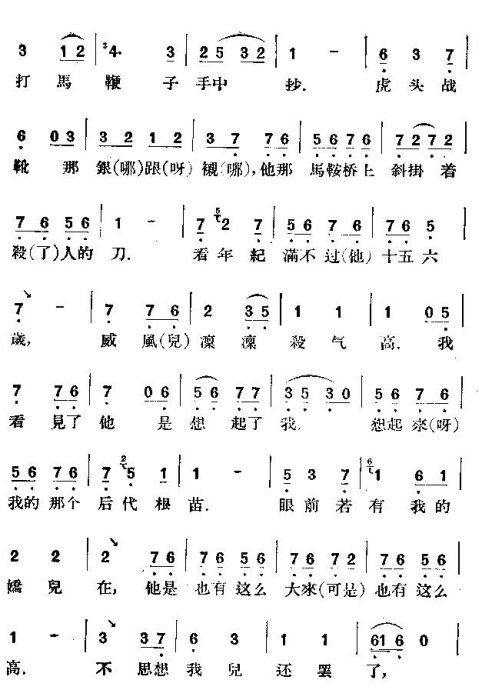 3 1 2 | 3 4· 3 | 2 5 3 2 | 1 - | 6 3 7 |
打馬鞭子手中抄. 虎头战
6 0 3 | 3 2 1 2 | 3 7 7 6 | 5 6 7 6 | 7 2 7 2 |
靴那銀(哪)跟(呀)襯(哪),他那馬鞍桥上斜掛着
7 6 5 6 | 1 - | 7 5 2 7 | 5 6 7 6 | 7 6 5 |
殺(了)人的刀. 看年紀滿不过(他)十五六
7 | 7 7 6 | 2 3 5 | 1 1 | 1 0 5 |
歲, 威風(兒)凜凜殺气高. 我
7 7 6 | 7 0 6 | 5 6 7 7 | 3 5 3 0 | 5 6 7 6 |
看見了他是想起了我. 想起來(呀)
5 6 7 6 | 2 7 5 1 | 1 - | 5 3 7 | 6 1 6 1 |
我的那个后代根苗. 眼前若有我的
2 2 | 2 7 6 | 7 6 5 6 | 7 6 7 2 | 7 6 5 6 |
嬌兒在, 他是也有这么大來(可是)也有这么
1 - | 3 3 7 | 6 3 | 1 1 | 6 1 6 0 |
高. 不思想我兒还罢了,